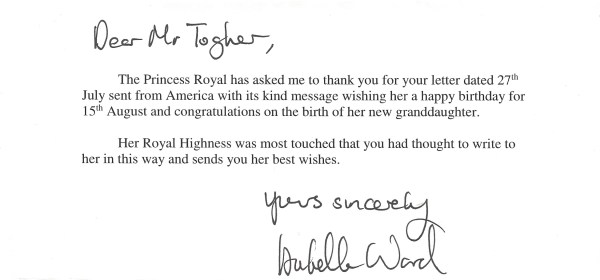 Dear Mr Togher,
The Princess Royal has asked me to thank you for your letter dated 27th
July sent from America with its kind message wishing her a happy birthday for
15th August and congratulations on the birth of her new granddaughter.
Her Royal Highness was most touched that you had thought to write to
her in this way and sends you her best wishes.
Yours sincerely
Isabella Ward